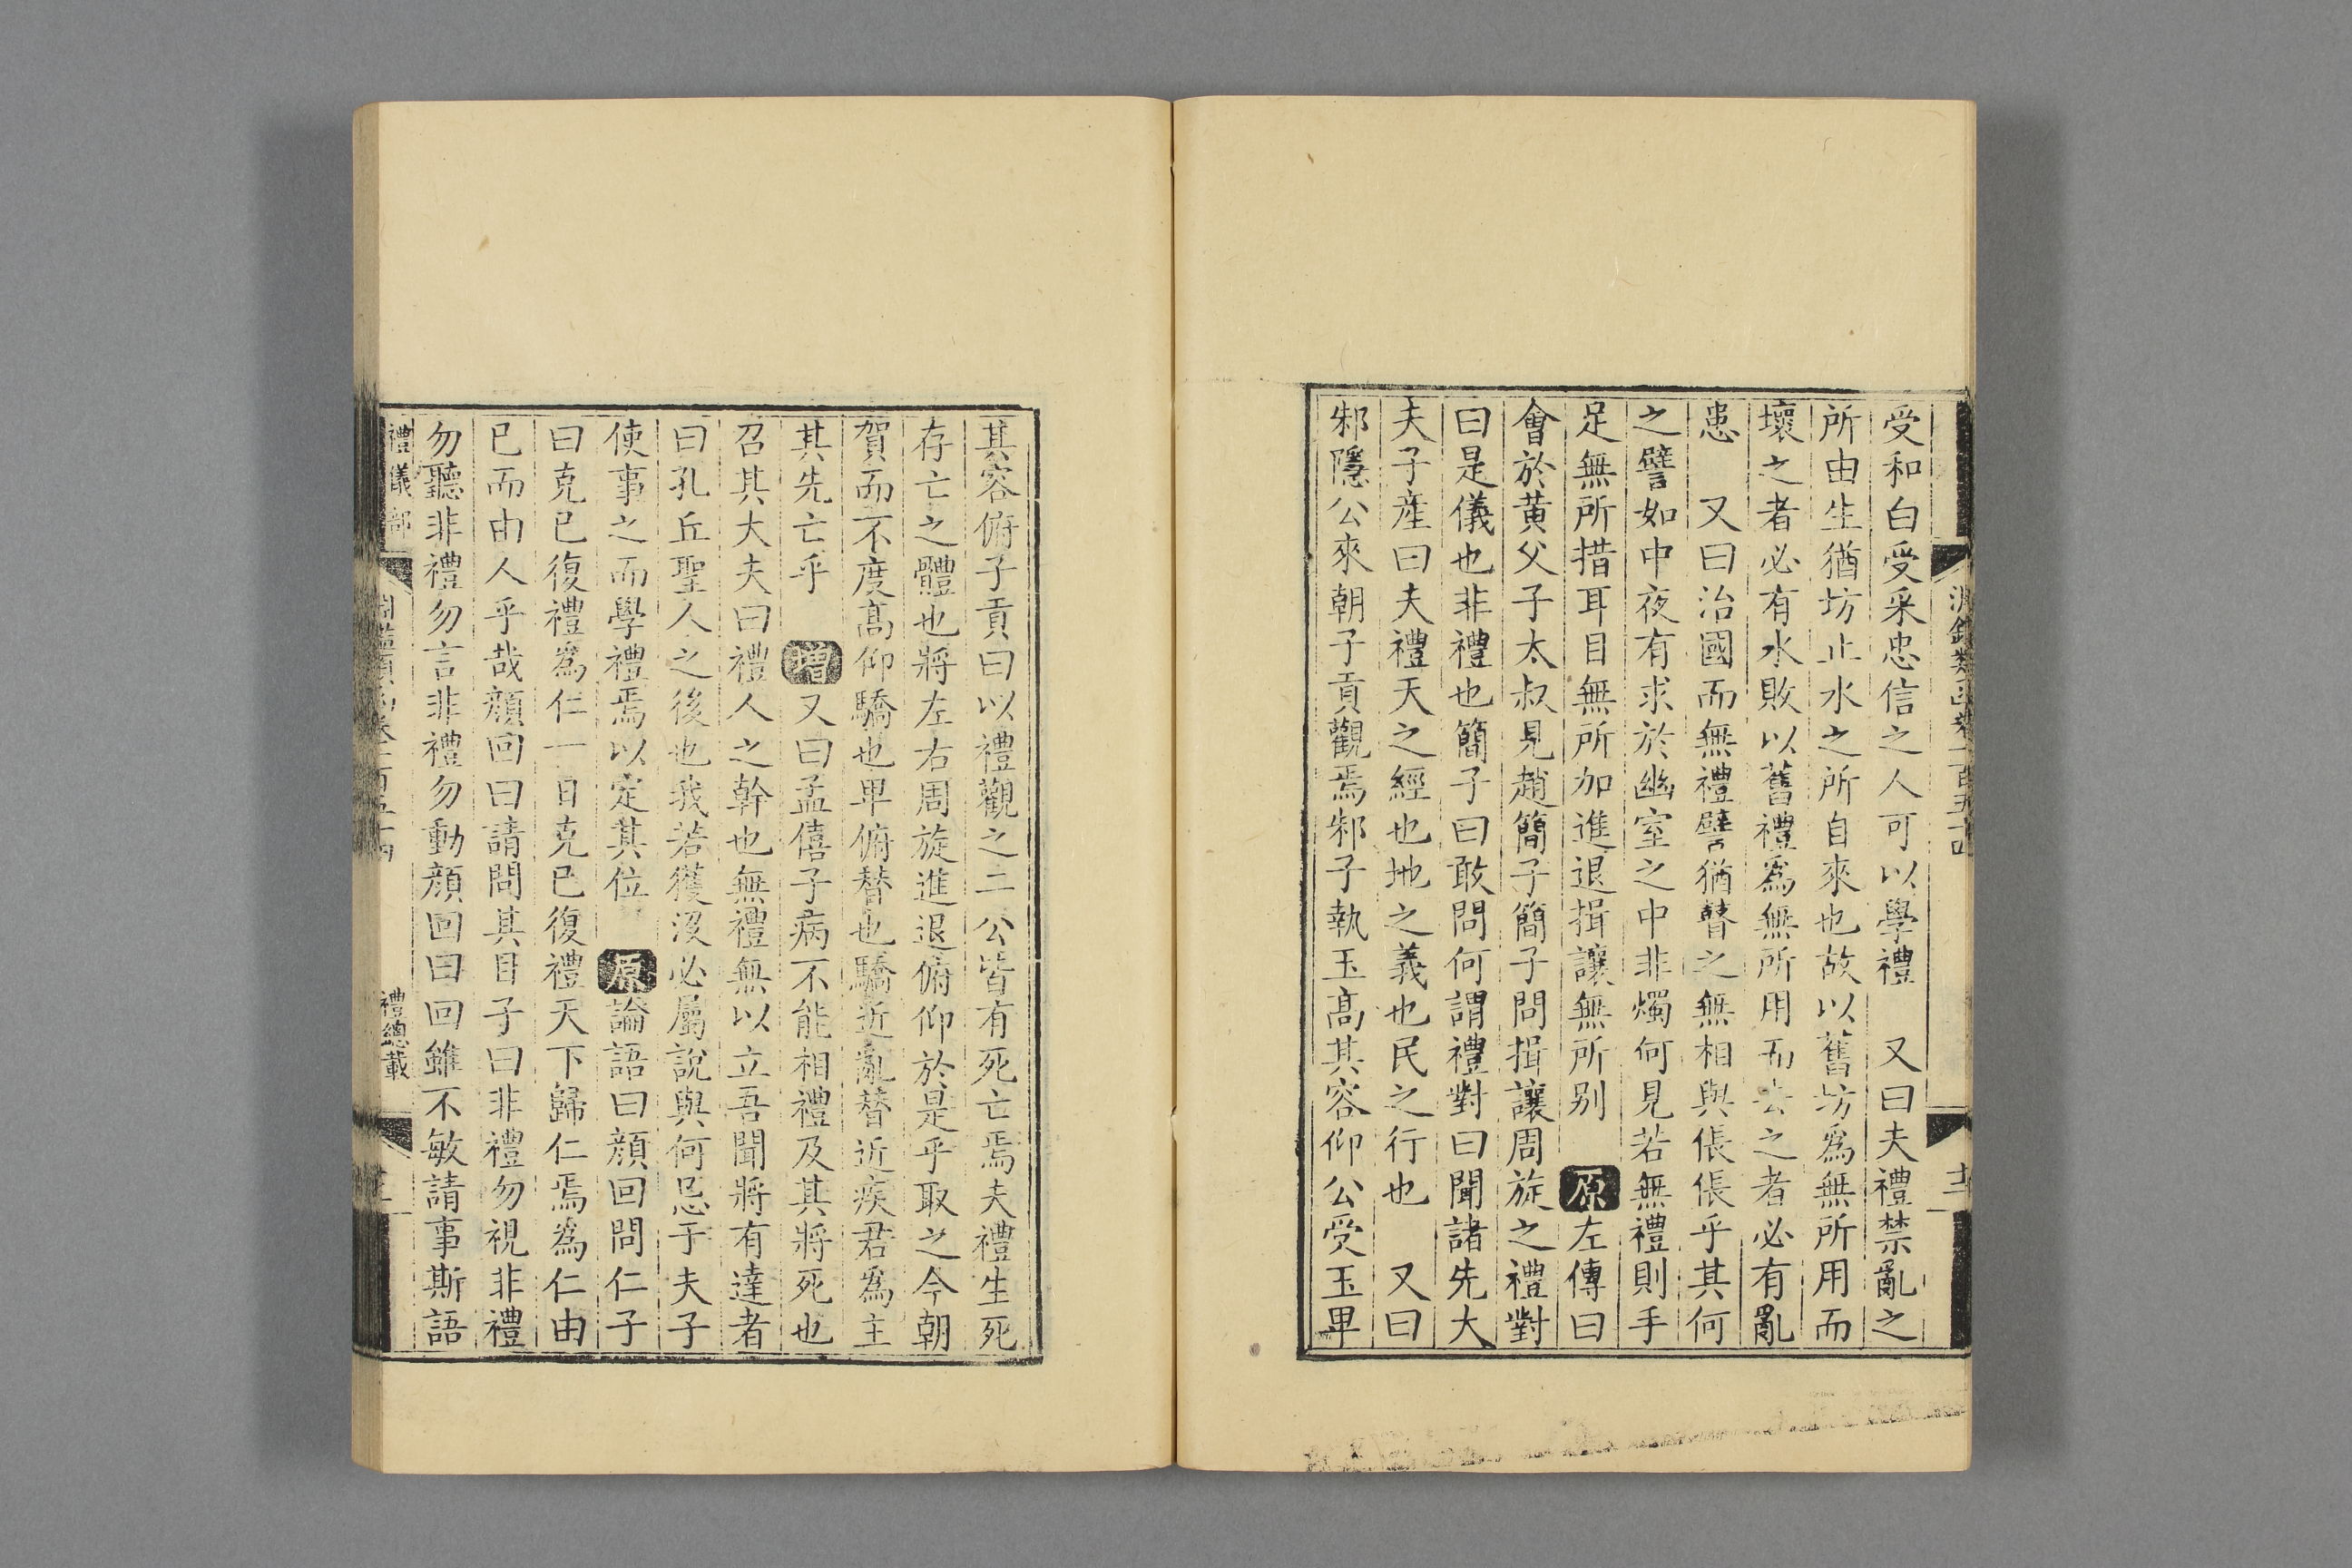 受和白受采忠信之人可以學禮 又曰夫禮禁亂之
所由生猶坊止水之所自來也故以舊坊爲無所用而
壞之者必有水敗以舊禮爲無所用而去之者必有亂
患 又曰治國而無禮譬猶瞽之無相與倀倀乎其何
之譬如中夜有求於幽室之中非燭何見若無禮則手
足無所措耳目無所加進退揖讓無所别 原左傳曰
會於黄父子太叔見趙簡子簡子問揖讓周旋之禮對
曰是儀也非禮也簡子曰敢問何謂禮對曰聞諸先大
夫子産曰夫禮天之經也地之義也民之行也 又曰
邾隱公來朝子貢觀焉邾子執玉高其容仰公受玉卑
其容俯子貢曰以禮觀之二公皆有死亡焉夫禮生死
存亡之體也將左右周旋進退俯仰於是乎取之今朝
賀而不度高仰驕也卑俯替也驕近亂替近疾君爲主
其先亡乎 增又曰孟僖子病不能相禮及其將死也
召其大夫曰禮人之幹也無禮無以立吾聞將有達者
曰孔丘聖人之後也我若獲没必屬說與何忌于夫子
使事之而學禮焉以定其位 原論語曰顔回問仁子
曰克已復禮爲仁一日克已復禮天下歸仁焉爲仁由
已而由人乎哉顔回曰請問其目子曰非禮勿視非禮
勿聽非禮勿言非禮勿動顔回曰回雖不敏請事斯語
禮儀部
禮總載